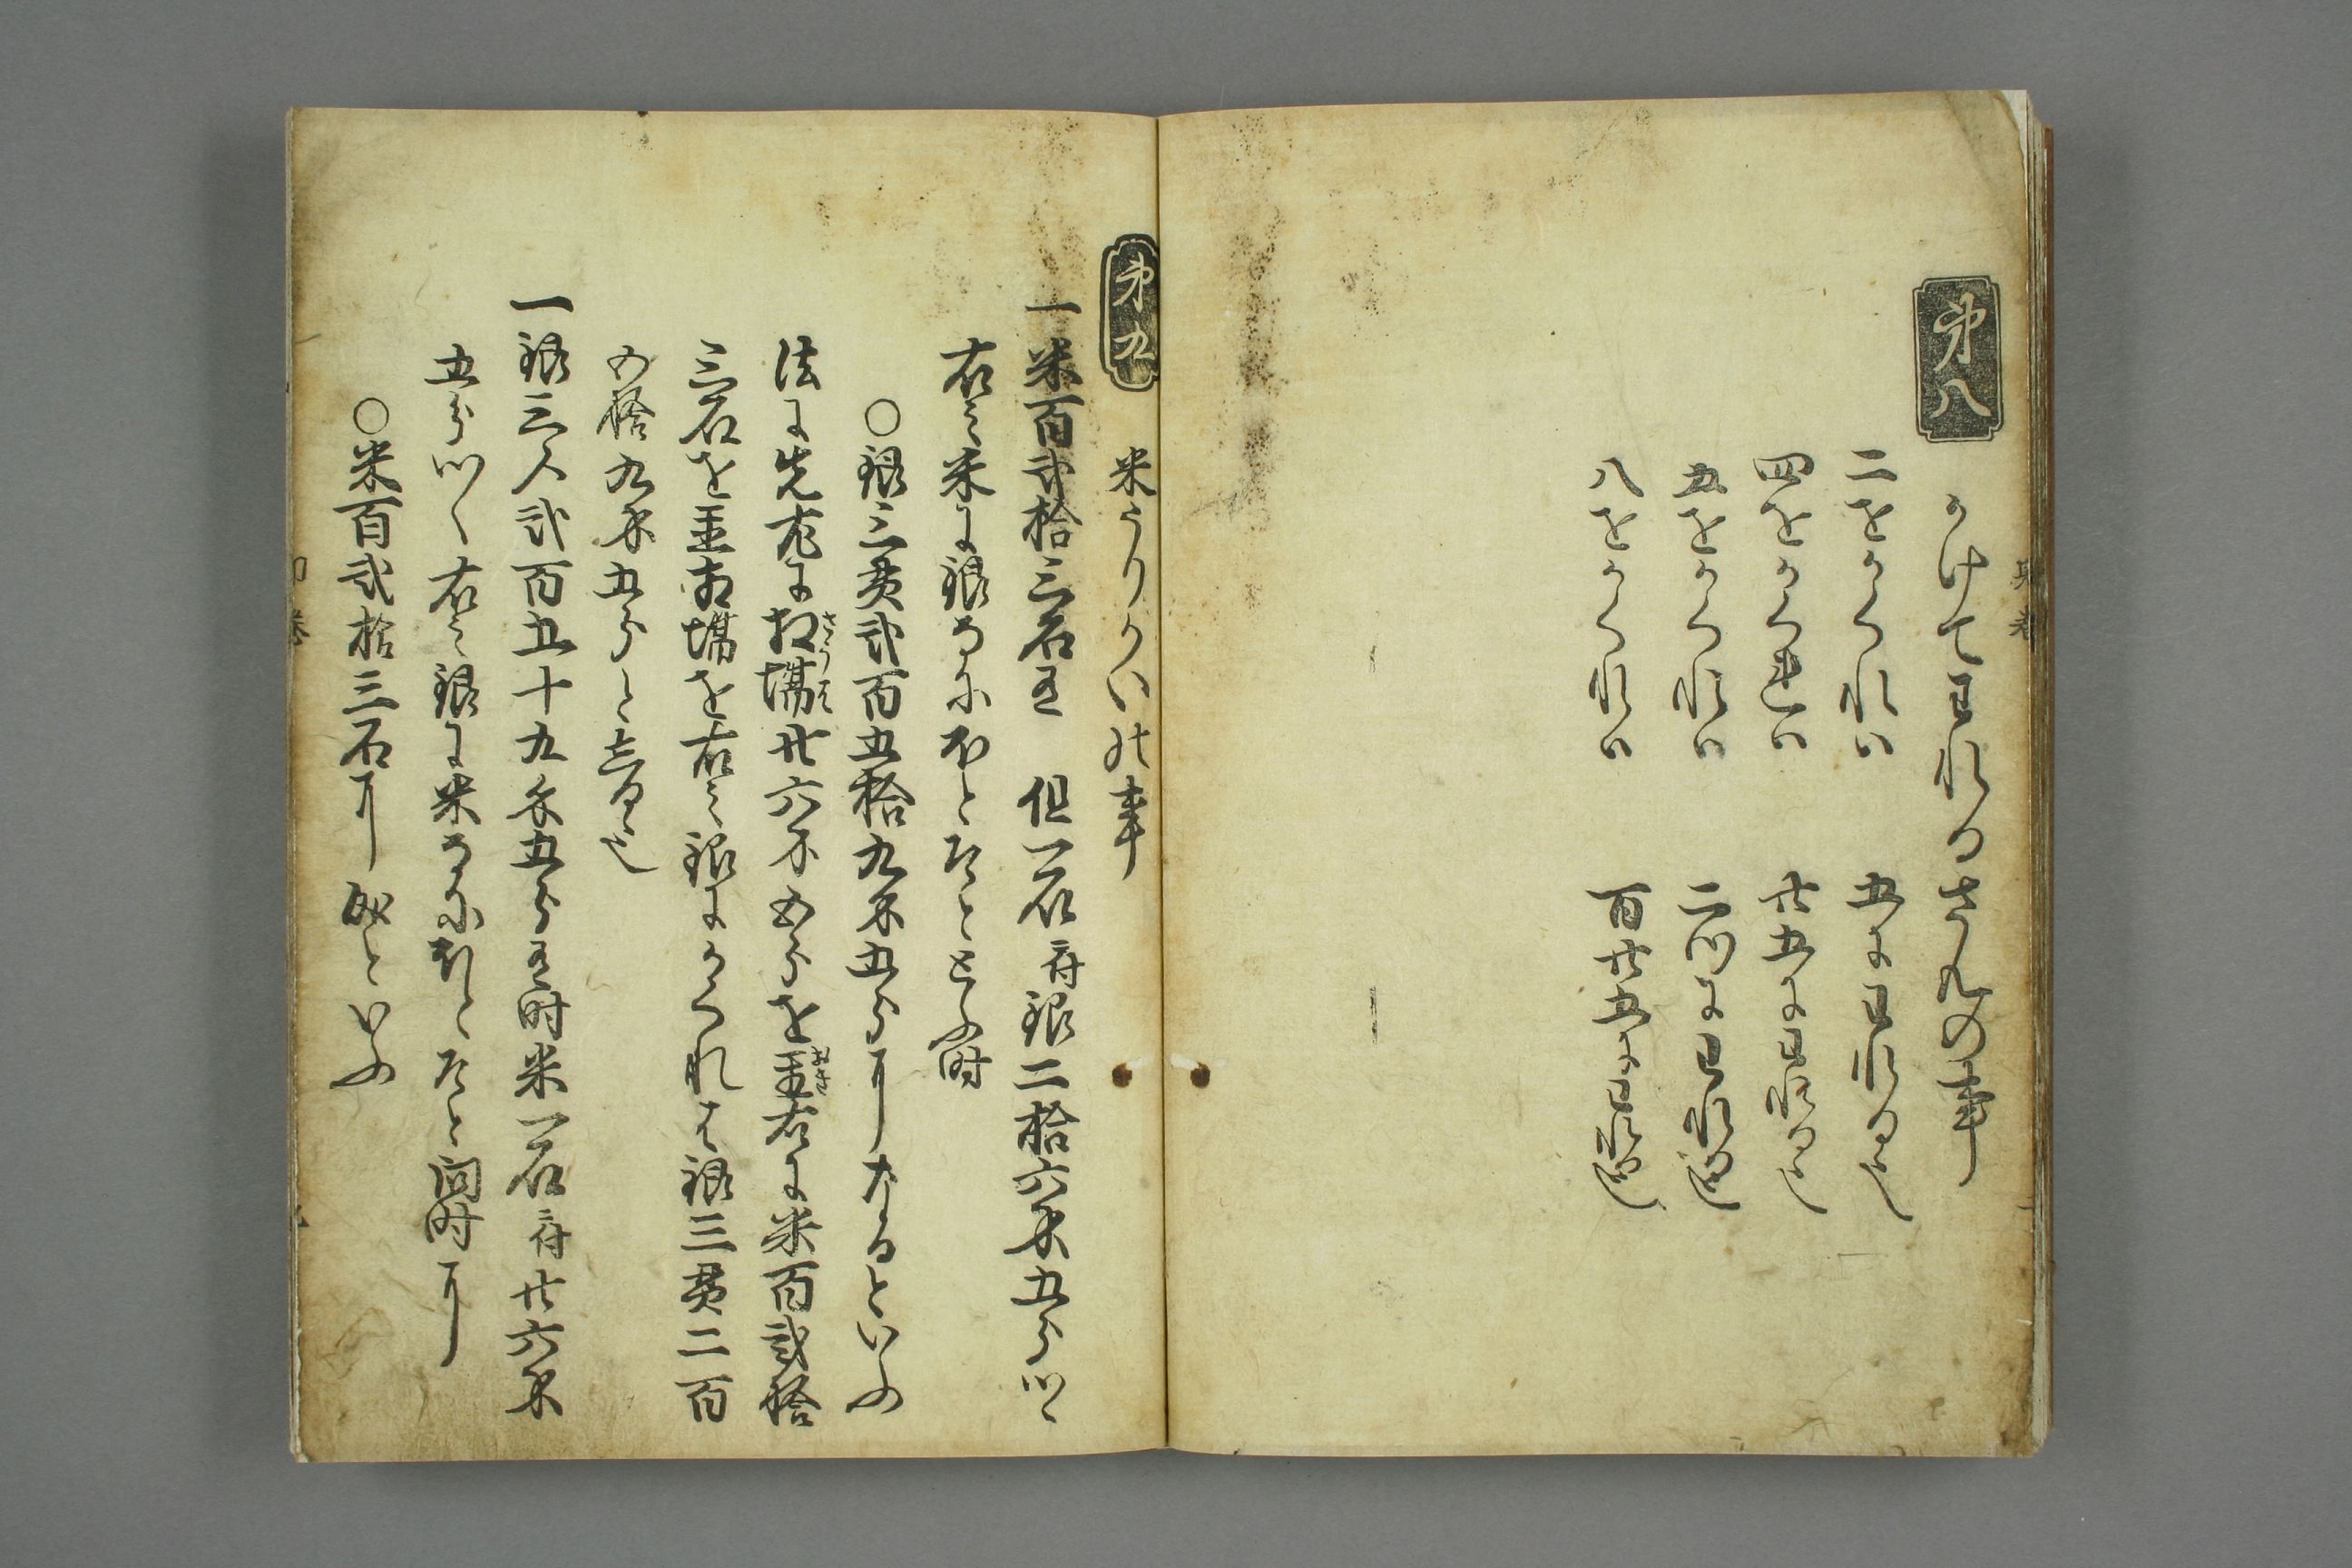 第八
かけてわれるさんの事
二をかくれは 五にわれる也
四をかくれは 廿五にわれる也
五をかくれは 二つにわれる也
八をかくれは 百廿五にわれる也
第九
米うりかいの事
一米百弐拾三石有 但一石ニ付銀二拾六匁五分つゝ
右之米に銀なにほとそととふ時
〇銀三貫弐百五拾九匁五分 なるといふ
法に先右に相場さうば廿六匁五分を置おき右に米百弐拾
三石を置相場を右之銀にかくれは銀三貫二百
五拾九匁五分と成也
一銀三〆弐百五十九匁五分有時米一石ニ付廿六匁
五分つゝ右之銀に米なにほとそと問時
〇米百弐拾三石 といふ